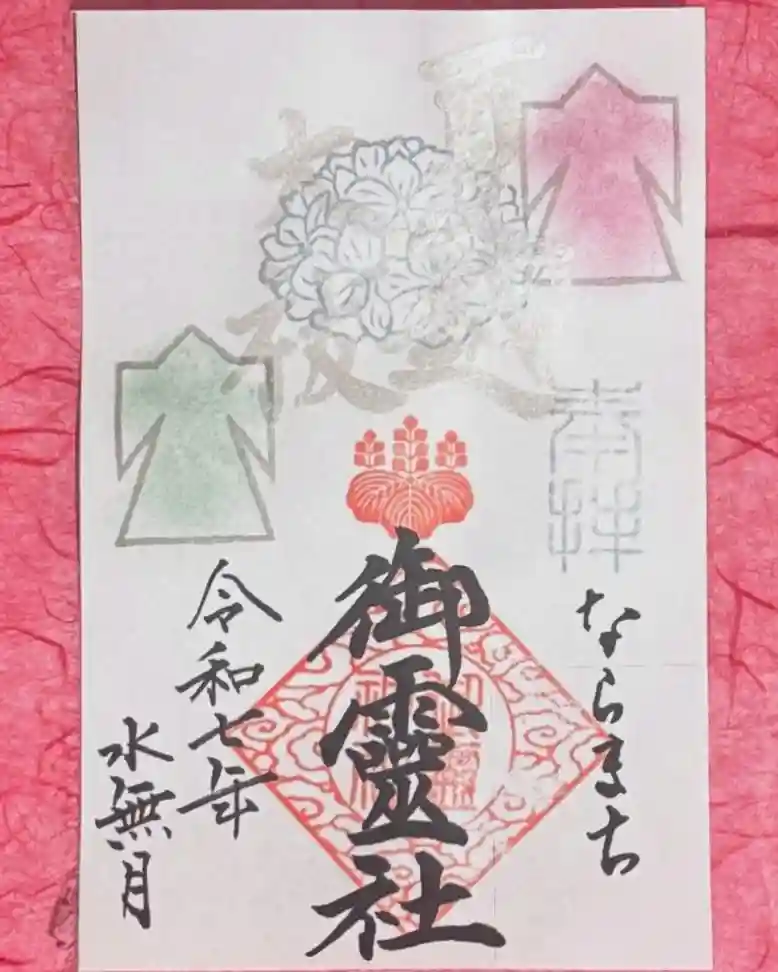 夏越
大祓
奉拝
ならまち
御靈社
令和七年
水無月